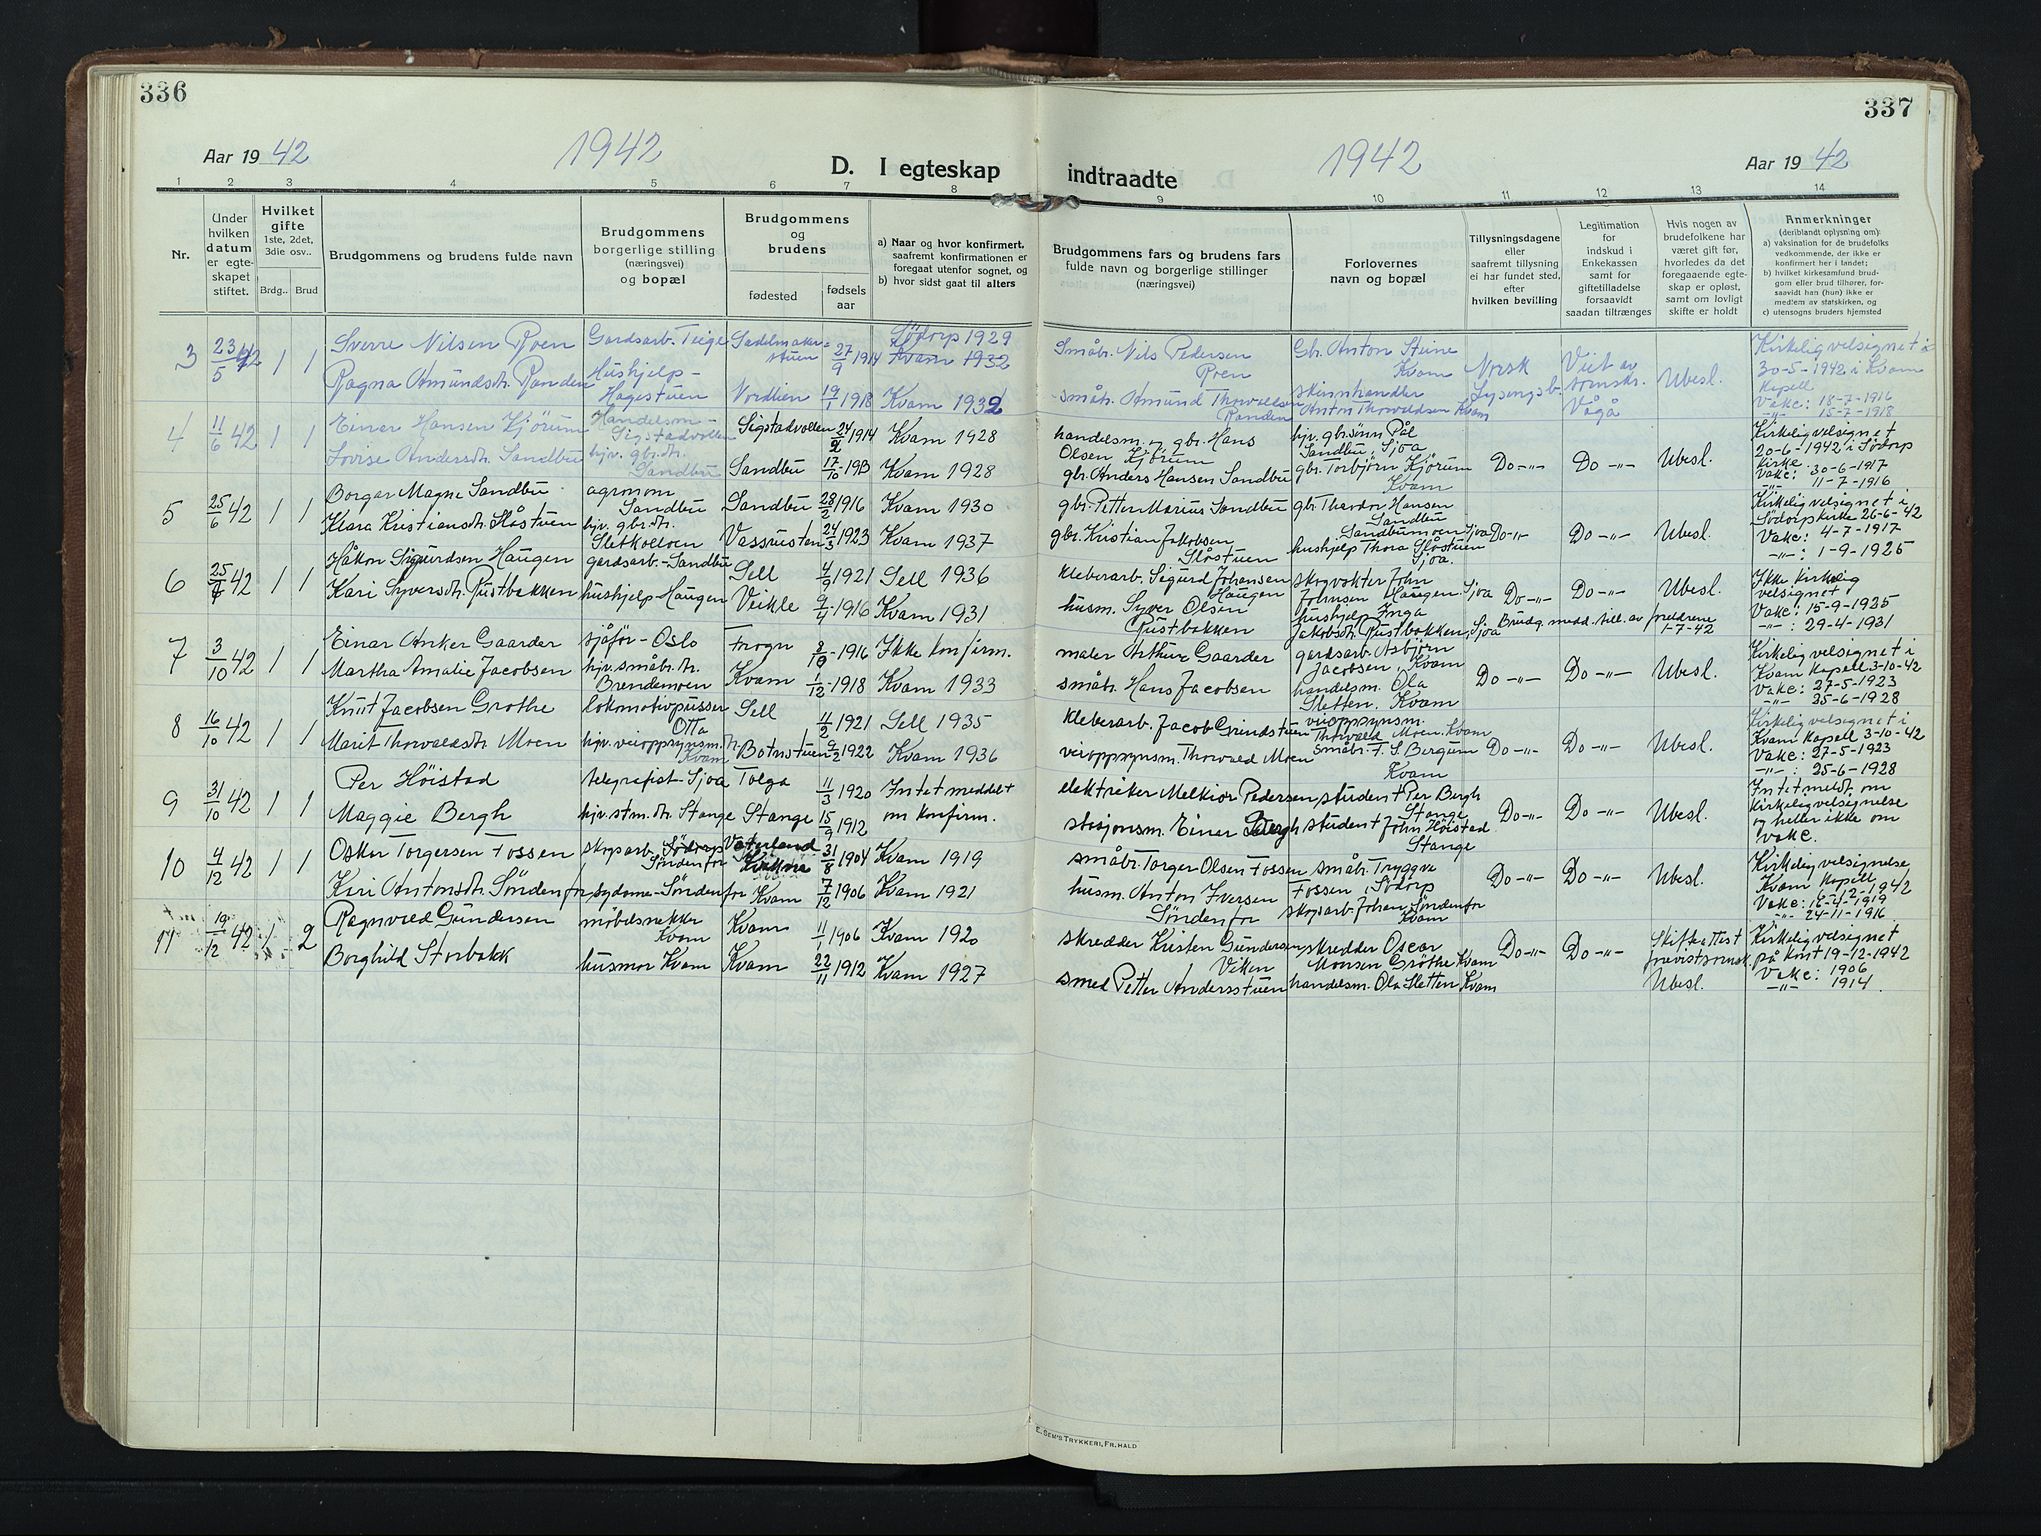 336
Aar 1942
1942
D. I egteskap
1 2 3 4 5 6 7 8
Nr.
Under hvilken datum er egteskapet stiftet.
Hvilket gifte 1ste, 2det, 3die osv..
Brdg.. Brud
Brudgommens og brudens fulde navn
Brudgommens borgerlige stilling (næringsvei) og bopæl
Brudgommens og brudens
fødested
fødsels aar
a) Naar og hvor konfirmert, saafremt konfirmationen er foregaat utenfor sognet, og
b) hvor sidst gaat til alters
3 23/5 42 1 1 Sverre Nilsen Roen Gardsarb. Teige Sadelmakerstuen 27/9 1914 Södorp 1929 Kvam 1932
Ragna Amundsdt. Randen Hushjelp - Hagestuen Nordlien 19/1 1918 Kvam 1932
4 11/6 42 1 1 Einar Hansen Kjörum Handelsm - Sigstadvollen Sigstadvollen 24/2 1914 Kvam 1928
Lovise Andersdt. Sandbu hjv. gbr. dt. Sandbu Sandbu 17/10 - 1913 Kvam 1928
5 25/6 42 1 1 Borgar Magne Sandbu agronom Sandbu Sandbu 28/2 1916 Kvam 1930
Klara Kristiansdt. Slåstuen hjv. gbr. dt. Sletkolloen Vassrusten 24/3 1923 Kvam 1937
6 25/7 42 1 1 Håkon Sigurdsen Haugen gardsarb - Sandbu Sell 4/9 1921 Sell 1936
Kari Syversdt. Rustbakken hushjelp - Haugen Veikle 9/4 - 1916 Kvam 1931
7 3/10 42 1 1 Einar Anker Gaarder sjåför - Oslo Frogn 8/10 - 1916 Ikke konfirm.
Martha Amalie Jacobsen hjv. småbr. dt. Brendemoen Kvam 1/12 - 1918 Kvam 1933
8 16/10 42 1 1 Knut Jacobsen Grothe lokomotivpusser Otta Sell 11/2 1921 Sell 1935
Marit Thorvaldsdt. Moen hjv. veioppsynsm. dt. Kvam Botnstuen 9/2 1922 Kvam 1936
9 31/10 42 1 1 Per Höistad telegrafist - Sjoa Tolga 11/3 1920 Intet meddelt
Maggie Bergh hjv. stm. dt. Stange Stange 15/9 1912 om konfirm.
10 4/12 42 1 1 Oskar Torgersen Fossen skogarb. Södorp Sönden for 31/8 1904 Kvam 1919
Kari Antonsdt. Sönden for sydame - Sönden for Kvam 7/12 1906 Kvam 1921
11 19/12 42 1 2 Ragnvald Gundersen möbelsnekker Kvam Kvam 11/1 1906 Kvam 1920
Borghild Storbakk husmor Kvam Kvam 22/11 1912 Kvam 1927
337
1942
Aar 1942
indtraadte
9 10 11 12 13 14
Brudgommens fars og brudens fars fulde navn og borgerlige stillinger (næringsvei)
Forlovernes navn og bopæl
Tillysningsdagene eller saafremt tillysning ei har fundet sted, efter hvilken bevilling
Legitimation for indskud i Enkekassen samt for giftetilladelse forsaavidt saadan tiltrænges
Hvis nogen av brudefolkene har været gift før, hvorledes da det foregaaende egteskap er opløst, samt om lovligt skifte er holdt
Anmerkninger (deriblandt oplysning om):
a) vaksination for de brudefolks vedkommende, der ikke er konfirmert her i landet;
b) hvilket kirkesamfund brudgom eller brud tilhører, forsaavidt han (hun) ikke er medlem av statskirken, og
c) utensogns bruders hjemsted
Småbr. Nils Pedersen Roen Gbr. Anton Steine Kvam Norsk Lysingsb. Vist av sornskr. Vågå Ubesl. Kirkelig velsignet i 30-5-1942 i Kvam Kapell
småbr. Amund Thorvaldsen Randen skinnhandler Anton Thorvaldsen Kvam Vake: 18-7-1916 -"- 15-7-1918
handelsm. og gbr. Hans Olsen Kjörum hjv. gbr. sönn Pål Sandbu, Sjoa Do -"- Do -"- Ubesl. Kirkelig velsignet 20-6-1942 i Södorp kirke
gbr. Anders Hansen Sandbu gbr. Torbjörn Kjörum Kvam Vake: 30-6-1917 -"- 11-7-1916
gbr. Petter Marius Sandbu gbr. Thordor Hansen Sandbu Do -"- Do -"- Ubesl. Kirkelig velsignet i Södorp kirke 26-6-42
gbr. Kristian Jakobsen Slåstuen Sandbumoen Sjoa hushjelp Thora Slåstuen Sjoa. Vake: 4-7-1917 -"- : 1-9-1925
kleberarb. Sigurd Johansen Haugen skogvokter John Johnsen Haugen, Sjoa Do -"- Do -"- Ubesl. Ikke kirkelig velsignet
husm. Syver Olsen Rustbakken hushjelp Inga Jakobsdt. Rustbakken, Sjoa Brudg. medd. till. av foreldrene 1-7-42 Vake: 15-9-1925 -"- : 29-4-1931
maler Arthur Gaarder gardsarb. Asbjörn Jacobsen, Kvam Do -"- Do -"- Ubesl. Kirkelig velsignet i Kvam Kapell 3-10-42
småbr. Hans Jacobsen handelsm. Ola Sletten, Kvam Vake: 27-5-1923 -"- 25-6-1928
kleberarb. Jacob Grindstuen veioppsynsm. Thorvald Moen. Kvam Do -"- Do -"- Ubesl. Kirkelig velsignet i Kvam Kapell 3-10-42
veioppsynsm. Thorvald Moen småbr. F. S. Bergum Kvam Vake: 27-5-1923 -"- : 25-6-1928
elektriker Melkior Pedersen student Per Bergh Stange Do -"- Do -"- Ubesl. Intet meldt om kirkelig velsignelse
stasjonsm. Einar Bergh student John Höistad Stange og heller ikke om vake.
småbr. Torger Olsen Fossen småbr. Tryggve Fossen, Södorp Do -"- Do -"- Ubesl. Kirkelig velsignelse Kvam Kapell
husm. Anton Iversen Sönden for skogsarb. Johan Söndenfor Kvam 4-12-1942 Vake: 16-4-1919 -"- 24-11-1916
skredder Kristen Gundersen Viken skredder Oscar Monsen Gröthe Kvam Do -"- Do -"- Skifteattest fra vist sornsk. Kirkelig velsignet på kont 19-12-1942
smed Petter Andersstuen handelsm. Ola Sletten Kvam Ubesl. Vake: 1906 -"- 1914
E. SEM'S TRYKKERI, FR.HALD